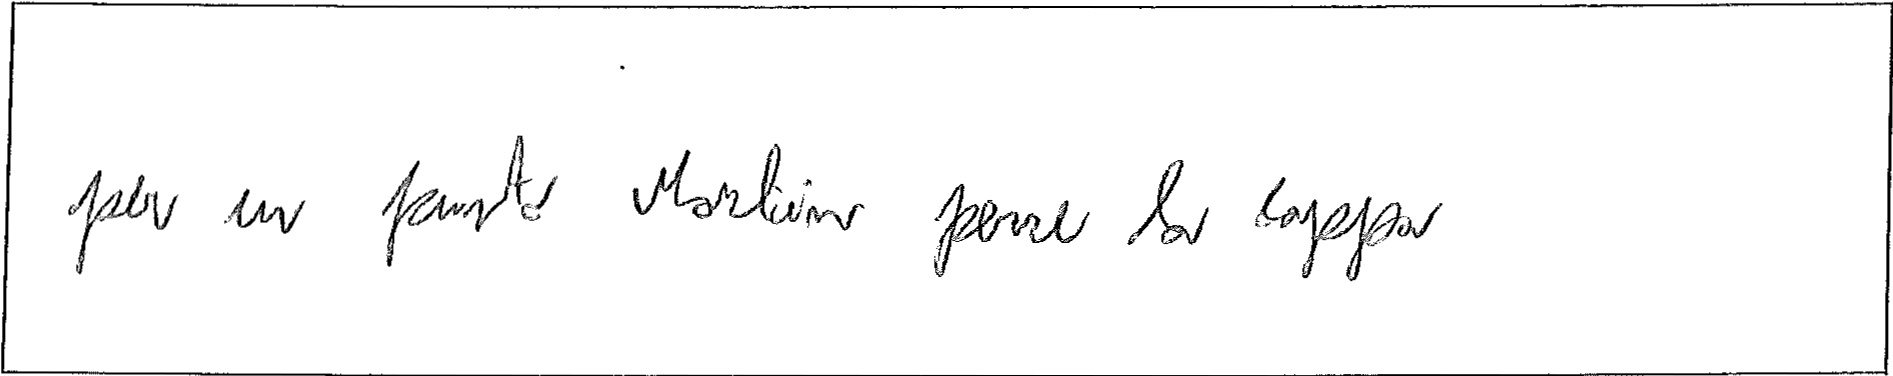 per un punto Martin perse la cappa